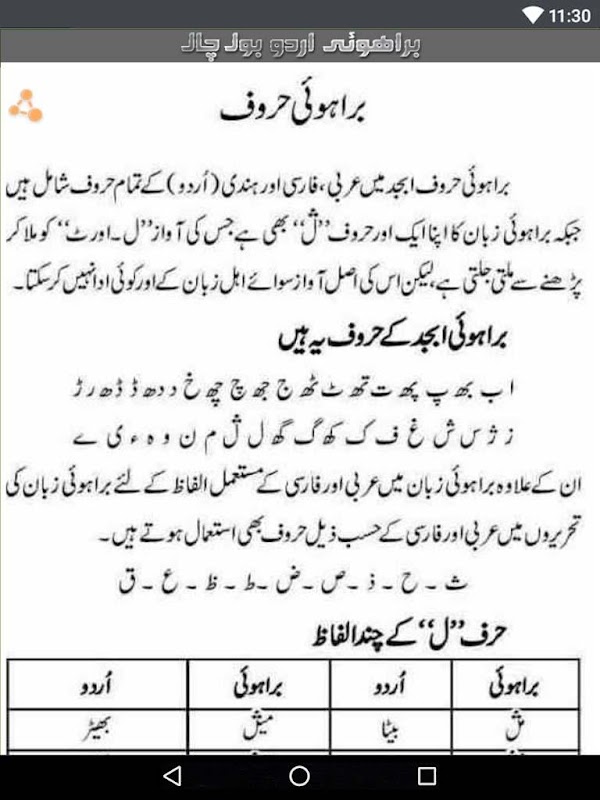 11:30
براھوئی اردو بول چال
براہوئی حروف
براہوئی حروف ابجد میں عربی، فارسی اور ہندی (اُردو) کے تمام حروف شامل ہیں
جبکہ براہوئی زبان کا اپنا ایک اور حروف ”ڷ“ بھی ہے جس کی آواز ”ل۔اورٹ“ کو ملا کر
پڑھنے سے ملتی جلتی ہے، لیکن اس کی اصل آواز سوائے اہل زبان کے اور کوئی ادا نہیں کرسکتا۔
براہوئی ابجد کے حروف یہ ہیں
ا ب بھ پ پھ ت تھ ٹ ٹھ ج جھ چ چھ خ د دھ ڈ ڈھ ر ڑ
ز ژ س ش غ ف ک کھ گ گھ ل ڷ م ن و ہ ء ی ے
ان کے علاوہ براہوئی زبان میں عربی اور فارسی کے مستعمل الفاظ کے لئے براہوئی زبان کی
تحریروں میں عربی اور فارسی کے حسب ذیل حروف بھی استعمال ہوتے ہیں۔
ث ۔ ح ۔ ذ ۔ ص ۔ ض ۔ ط ۔ ظ ۔ ع ۔ ق
حرف ”ل“ کے چند الفاظ
براہوئی اُردو براہوئی اُردو
مڷ بیٹا میش بھیڑ